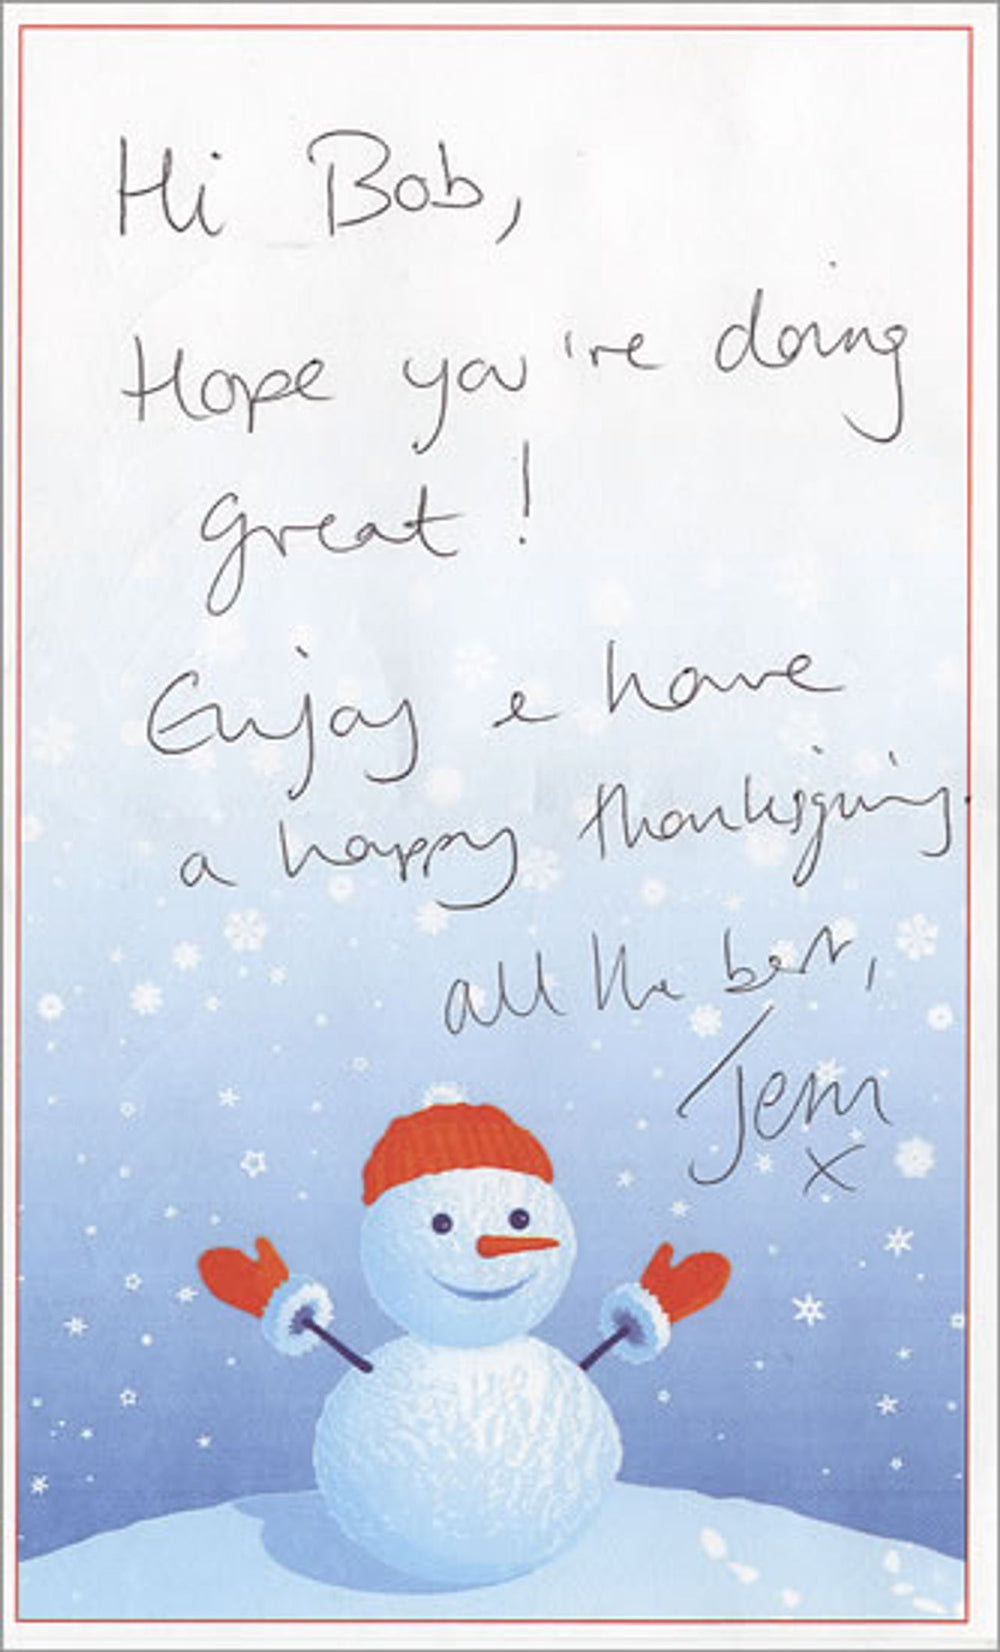 Hi Bob,
Hope you're doing
great!
Enjoy & have
a happy thanksgiving.
all the best,
Jem
x